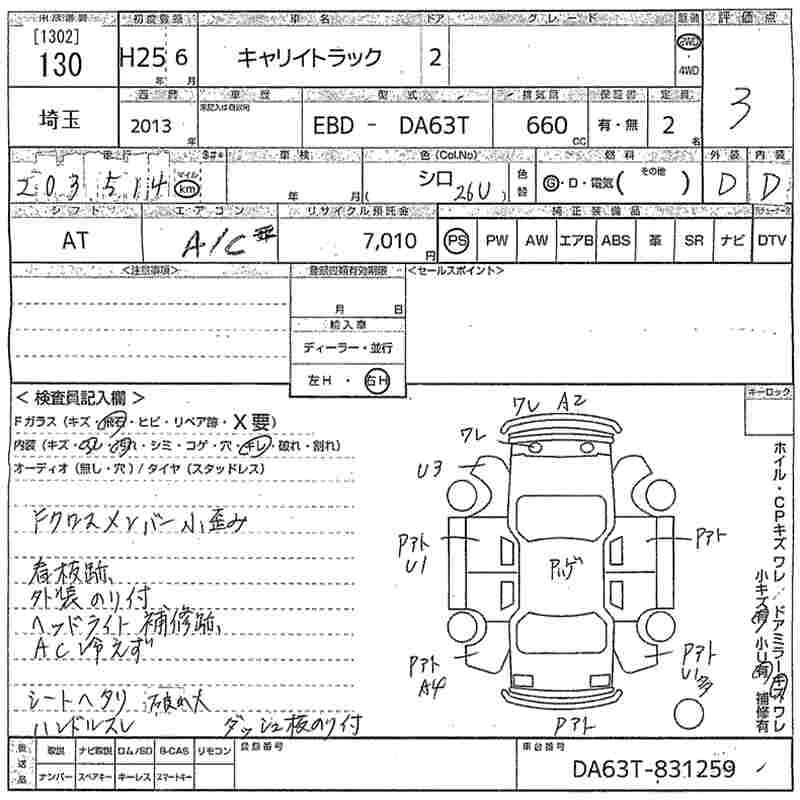 初度登録 車名 ドア グレード 評価点
[1302]
130 H25 6 キャリイトラック 2 2WD
年 月 4WD
埼玉 型式 排気量 保証書 定員 3
2013 EBD - DA63T 660 有・無 2
年 cc 名
車検 色(Col.No) 燃料 外装 内装
203,514 マイル km 年 月( シロ 26U) 色替 G・D・電気( その他 ) D D
シフト エアコン リサイクル預託金 純正装備品
AT A/C 7,010円 PS PW AW エアB ABS 革 SR ナビ DTV
<注意事項> <セールスポイント>
月 日
輸入車
ディーラー・並行
左H・右H
<検査員記入欄> キーロック
Fガラス(キズ・飛石・ヒビ・リペア跡・X要)
内装(キズ・スレ・汚れ・シミ・コゲ・穴・キレ・破れ・割れ)
オーディオ(無し・穴)/タイヤ(スタッドレス)
Fクロスメンバー小歪み
看板跡
外装のり付
ヘッドライト補修跡
AC冷えず
シートヘタリ
ハンドルスレ ダッシュ板のり付
ワレ A2
ワレ
U3
Pアト
U1
Pアト
Pハゲ
Pアト
A4
Pアト
U1多
Pアト
ホイル・CPキズ ワレ/ドアミラーキズ ワレ
小キズ有 小U有 補修有
後送品 取説 ナビ取説 ロム/SD B-CAS リモコン 登録番号 車台番号
ナンバー スペアキー キーレス スマートキー DA63T-831259